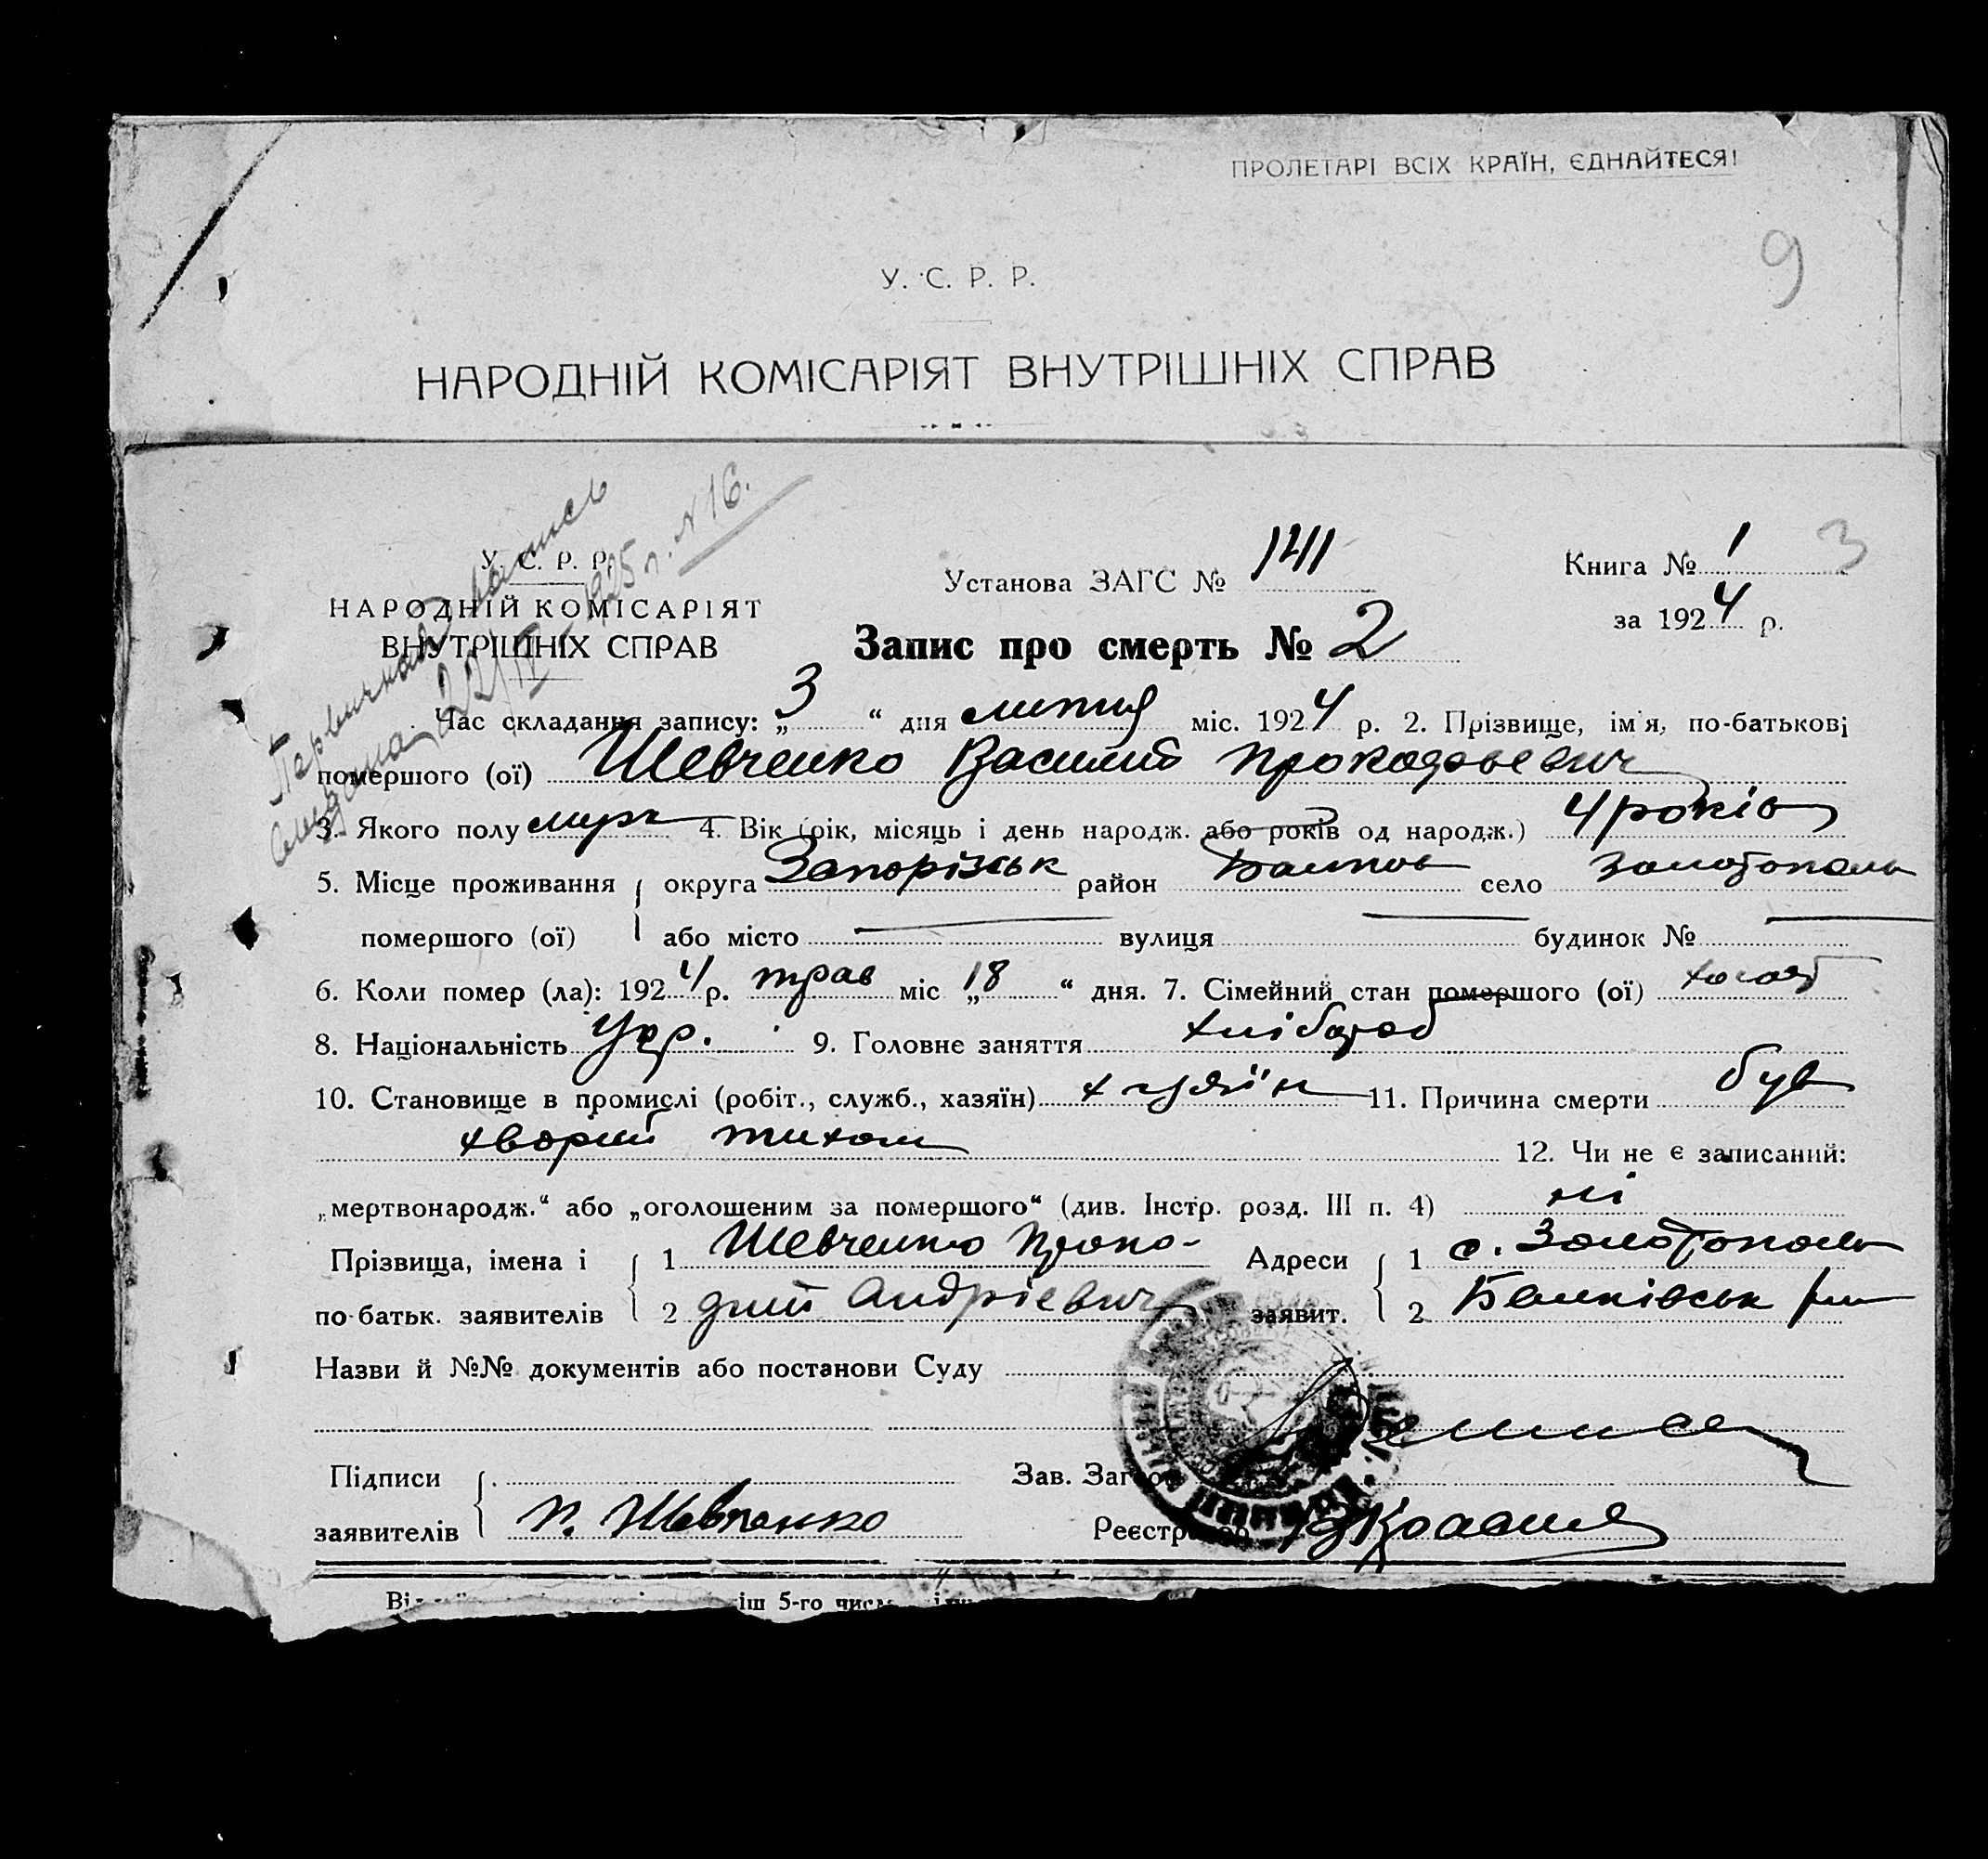 ПРОЛЕТАРІ ВСІХ КРАЇН, ЄДНАЙТЕСЯ!
9
У. С. Р. Р.
НАРОДНІЙ КОМІСАРІЯТ ВНУТРІШНІХ СПРАВ
запись
1925 г. N 16.
У. С. Р. Р.
НАРОДНІЙ КОМІСАРІЯТ
ВНУТРІШНІХ СПРАВ
Установа ЗАГС № 1411
Книга № 1 3
за 1924 р.
Запис про смерть № 2
Час складання запису: „3“ дня липня міс. 1924 р. 2. Прізвище, ім'я, по-батькові
помершого (ої) Шевченко Василий Прокофьевич
3. Якого полу муж 4. Вік (рік, місяць і день народж. або років од народж.) 4 років
5. Місце проживання округа Запорізськ район село Золотополь
помершого (ої) або місто — вулиця — будинок № —
6. Коли помер (ла): 1924 р. трав міс „18“ дня. 7. Сімейний стан помершого (ої) холост
8. Національність Укр. 9. Головне заняття хлібороб
10. Становище в промислі (робіт., служб., хазяїн) хазяїн 11. Причина смерти був
хворий 12. Чи не є записаний:
„мертвонародж.“ або „оголошеним за помершого“ (див. Інстр. розд. III п. 4) ні
Прізвища, імена і 1 Шевченко Проко- Адреси 1 с. Золотополь
по-батьк. заявителів 2 Андрієвич заявит. 2
Назви й №№ документів або постанови Суду
Підписи
Зав. Загсом
заявителів П. Шевченко Реєстратор
іш 5-го числа